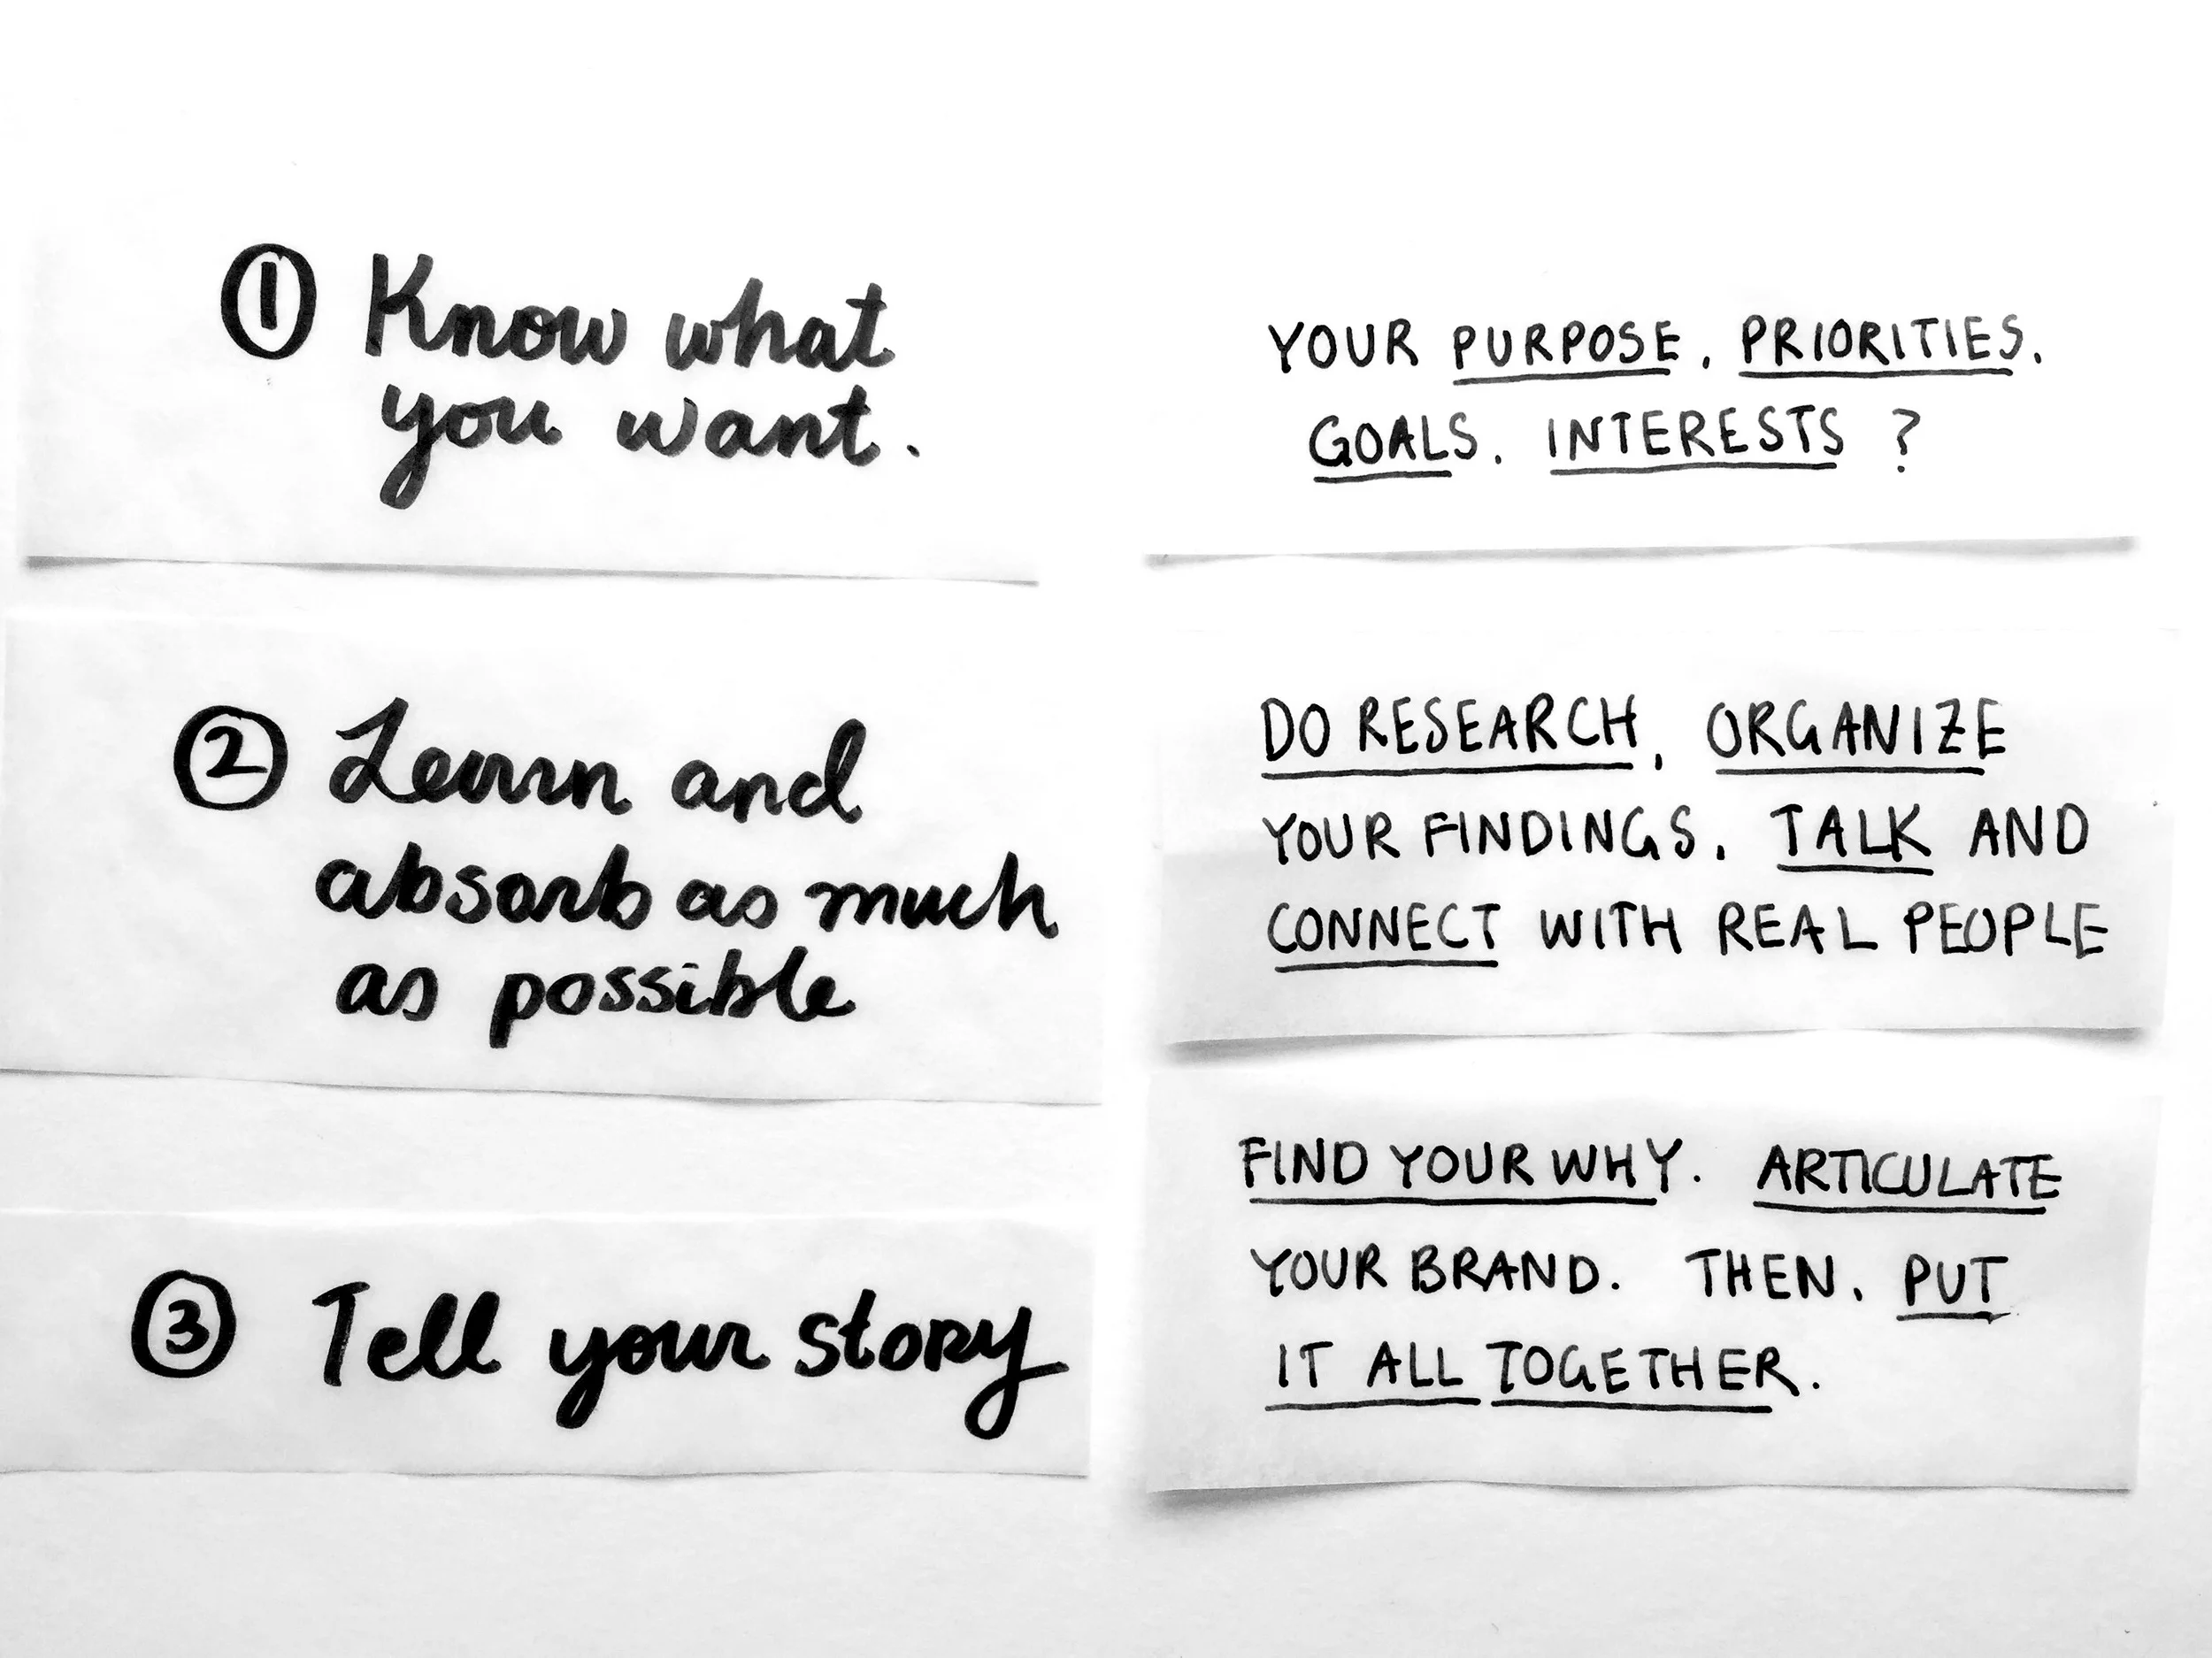 ① Know what
you want.
YOUR PURPOSE, PRIORITIES,
GOALS, INTERESTS ?
② Learn and
absorb as much
as possible
DO RESEARCH, ORGANIZE
YOUR FINDINGS. TALK AND
CONNECT WITH REAL PEOPLE
③ Tell your story
FIND YOUR WHY. ARTICULATE
YOUR BRAND. THEN, PUT
IT ALL TOGETHER.